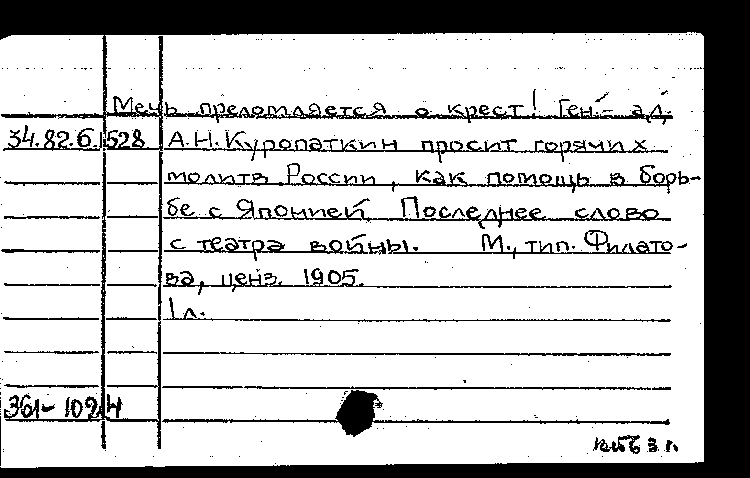 Мечь преломляется о крест! Ген.- ад.
34.82.6.1528 А.Н. Куропаткин просит горячих
молитв России, как помощь в борь-
бе с Японией. Последнее слово
с театра войны. М., тип. Филато-
ва, ценз. 1905.
1 л.
361-102.4